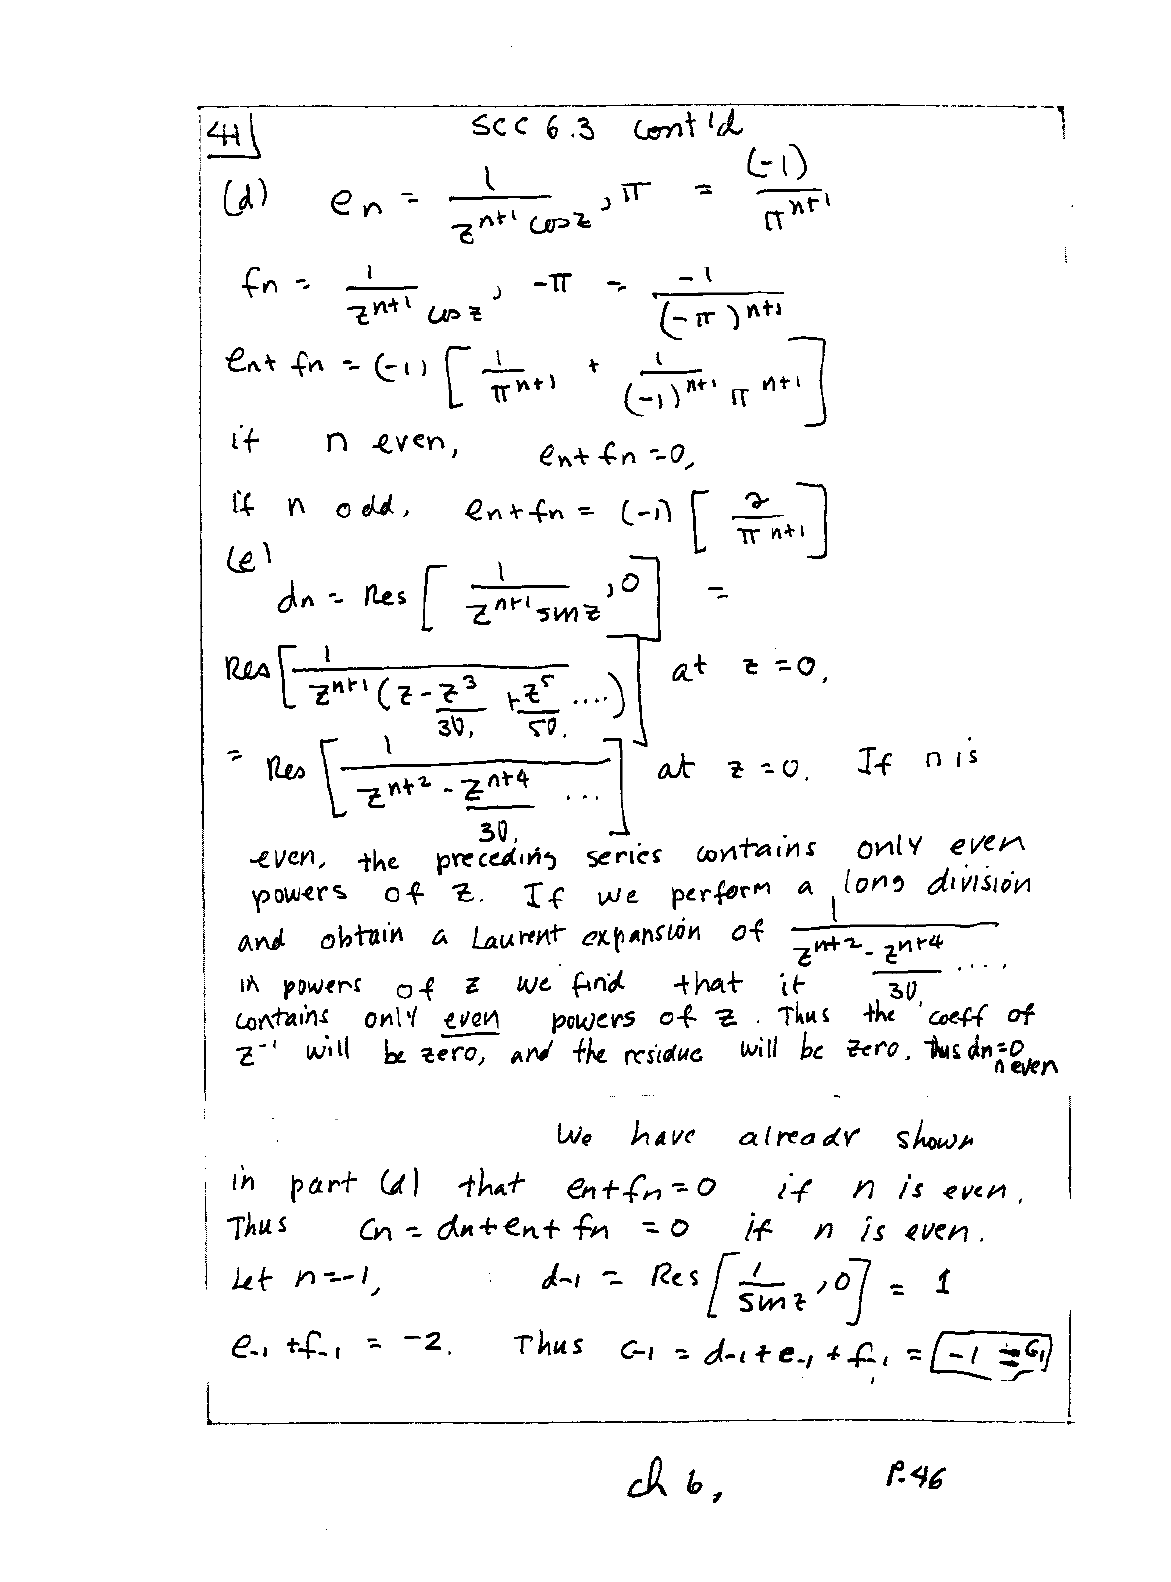 41 SCC 6.3 cont'd
(d) en = 1/(z^{n+1} cos z), π = (-1)/π^{n+1}
fn = 1/(z^{n+1} cos z), -π = -1/(-π)^{n+1}
en + fn = (-1) [ 1/π^{n+1} + 1/((-1)^{n+1} π^{n+1}) ]
if n even, en + fn = 0,
If n odd, en + fn = (-1) [ 2/π^{n+1} ]
(e)
dn = Res [ 1/(z^{n+1} sin z), 0 ] =
Res [ 1/(z^{n+1} (z - z^3/3! + z^5/5! ....)) ] at z = 0,
= Res [ 1/(z^{n+2} - z^{n+4}/3! ...) ] at z = 0. If n is
even, the preceding series contains only even
powers of z. If we perform a long division
and obtain a Laurent expansion of 1/(z^{n+2} - z^{n+4}/3! ....)
in powers of z we find that it
contains only even powers of z. Thus the coeff of
z^{-1} will be zero, and the residue will be zero. Thus dn = 0
n even
We have already shown
in part (d) that en + fn = 0 if n is even.
Thus Cn = dn + en + fn = 0 if n is even.
Let n = -1, d-1 = Res [ 1/sin z, 0 ] = 1
e-1 + f-1 = -2. Thus C-1 = d-1 + e-1 + f-1 = -1 = C-1
ch 6, P.46